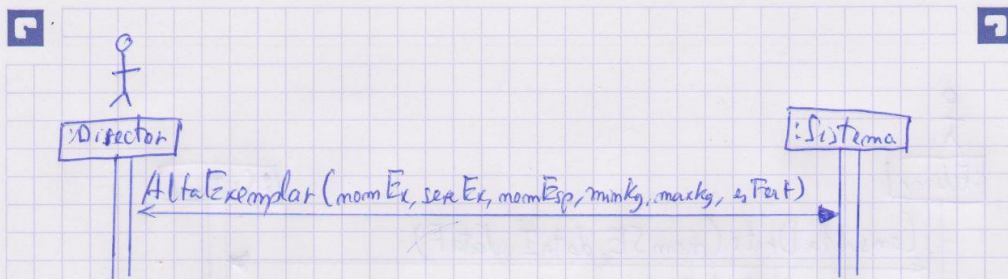 :Director
:Sistema
AltaExemplar (nomEx, sexeEx, nomEsp, minkg, maxkg, esFert)